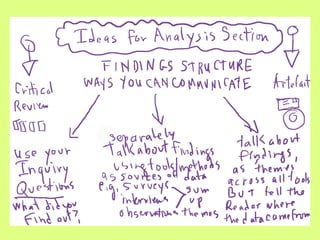 Ideas for Analysis Section
FINDINGS STRUCTURE
WAYS YOU CAN COMMUNICATE
Critical
Review
Artefact
use your
Inquiry
Questions
what did you
Find out?,
separately
Talk about findings
using tools/methods
as sources of data
e.g. surveys
interviews
observations
sum
up
themes
talk about
findings,
as themes
across all tools
BUT tell the
Reader where
the data came from